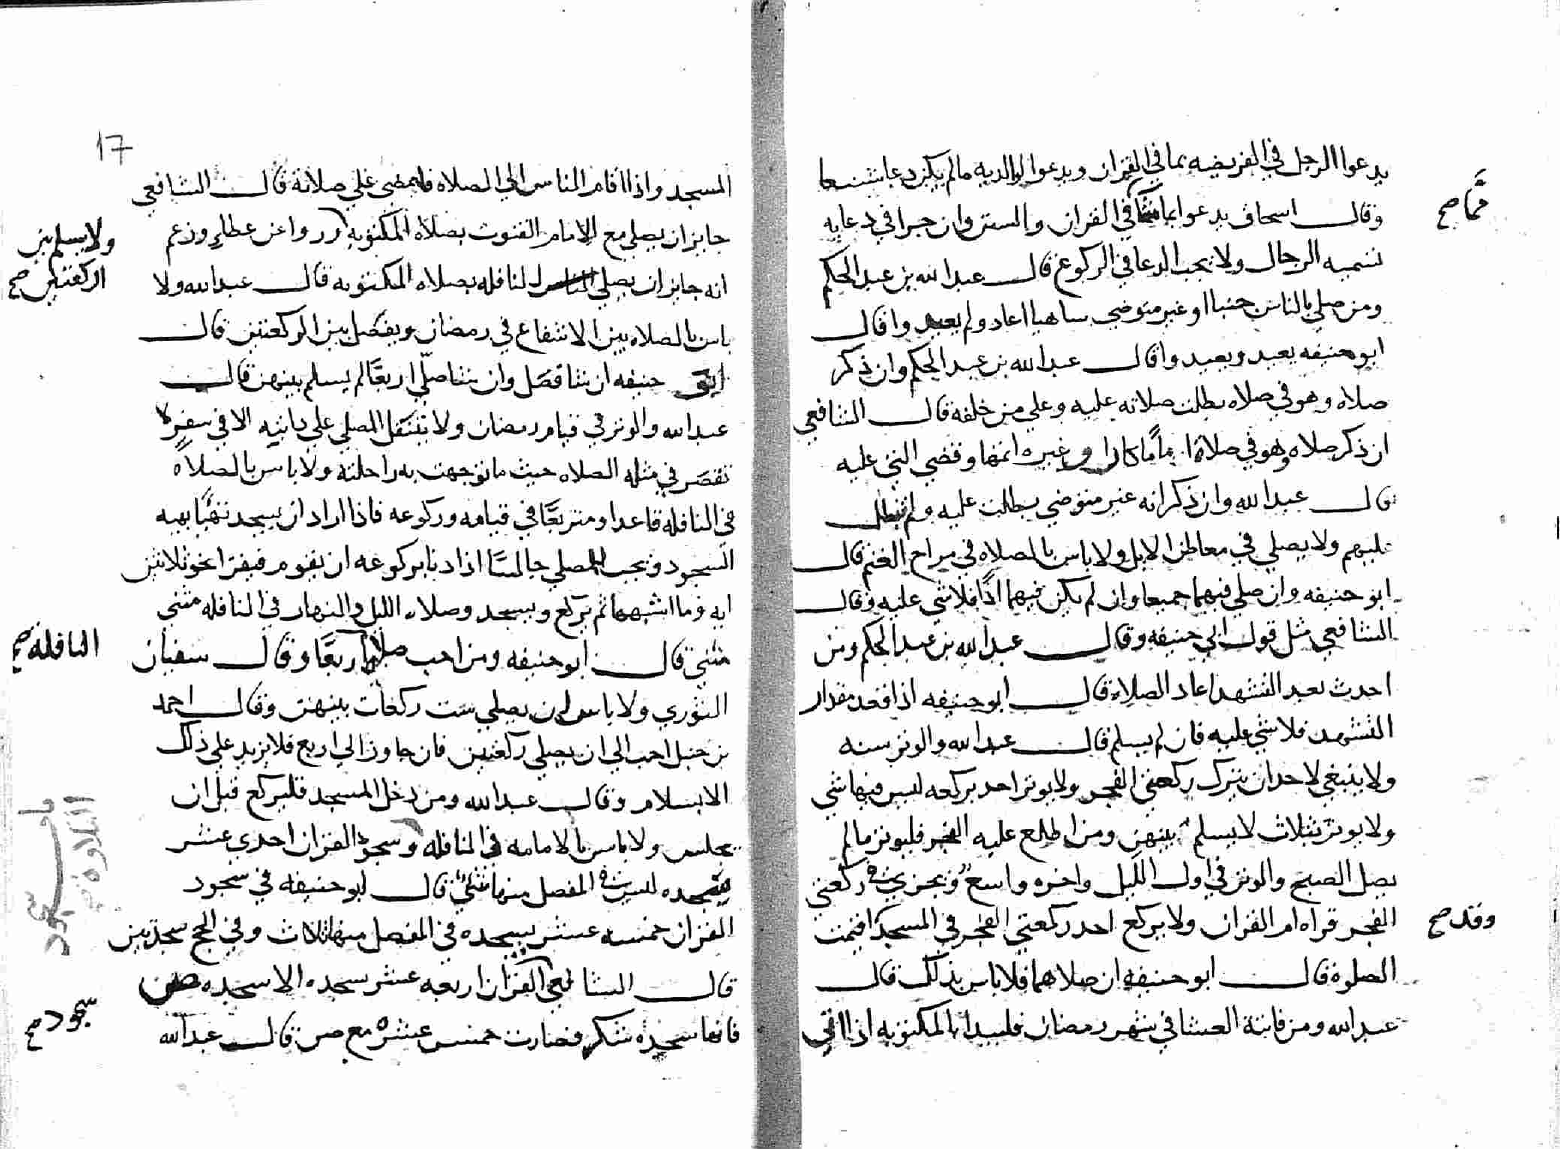 يدعوا الرجل في الفريضه بما في القران ويدعوا لوالديه ما لم يكن دعا شنيعا
وقال اسحاق يدعوا بما شا في القران والسنن وان جرا في دعايه
مما صح
تسميه الرجال ولا يجب الدعا في الركوع قال عبد الله بن عبد الحكم
ومن صلى بالناس جنبا او غير متوضي ساهيا اعاد ولم يعيدوا قال
ابو حنيفه يعيد ويعيدوا قال عبد الله بن عبد الحكم وان ذكر
صلاه وهو في صلاه بطلت صلاته عليه وعلى من خلفه قال الشافعي
ان ذكر صلاه وهو في صلاة اماما كان او غيره اتمها وقضي التي عليه
قال عبد الله وان ذكر انه غير متوضي بطلت عليه ولم تبطل
عليهم ولا يصلي في معاطن الابل ولا باس بالصلاه في مراح الغنم قال
ابو حنيفه وان صلى فيهما جميعا وان لم يكن فيهما اذا فلا شي عليه وقال
الشافعي مثل قول ابي حنيفه وقال عبد الله بن عبد الحكم ومن
احدث بعد التشهد اعاد الصلاه قال ابو حنيفه اذا قعد مقدار
التشهد فلا شي عليه فان لم يسلم قال عبد الله والوتر سنه
ولا ينبغي لاحد ان يترك ركعتي الفجر ولا يوتر احد بركعه ليس فيها شي
ولا يوتر بثلاث لا يسلم بينهن ومن اطلع عليه الفجر فليوتر ما لم
يصل الصبح والوتر في اول الليل واخره واسع ويجزي في ركعتي
الفجر قراه ام القران ولا يركع احد ركعتي الفجر في المسجد اقيمت
وقد صح
الصلوة قال ابو حنيفه ان صلاهما فلا باس بذلك قال
عبد الله ومن فاتته العشا في شهر رمضان فليبدا بالمكتوبه اذا اتى
17
المسجد واذا اقام الناس الي الصلاه فلا يمضى علي صلاته قال الشافعي
جايز ان يصلي مع الامام القنوت بصلاه المكتوبه روا عن عطا وزعم
انه جايز ان يصلي النافله بصلاه المكتوبه قال عبد الله ولا
ولا يسلم بين
الركعتين صح
باس بالصلاه بين الاشفاع في رمضان ويفصل بين الركعتين قال
ابو حنيفه ان شا فصل وان شا صلى اربعا لم يسلم بينهن قال
عبد الله والوتر في قيام رمضان ولا يتنفل المصلي علي دابته الا في سفر لا
تقصر في مثله الصلاه حيث ما توجهت به راحلته ولا باس بالصلاه
في النافله قاعدا ومتربعا في قيامه وركوعه فاذا اراد ان يسجد تهيا بهيه
السجود ويجب للمصلي جالسا اذا دنا بركوعه ان يقوم فيقرا نحو ثلاثين
ايه وما اشبهها ثم يركع ويسجد وصلاه الليل والنهار في النافله مثنى
مثنى قال ابو حنيفه ومن احب صلاها اربعا وقال سفيان
النافله صح
الثوري ولا باس ان يصلي ست ركعات بينهن وقال احمد
بن حنبل احب الي ان يصلي ركعتين فان جاوز الي اربع فلا يزيد علي ذلك
الا بسلام وقال عبد الله ومن دخل المسجد فليركع قبل ان
يجلس ولا باس بالامامه في النافله وسجود القران احدى عشر
باب سجود
التلاوه صح
سجده ليس في المفصل منها شي قال ابو حنيفه في سجود
القران خمسه عشر سجده في المفصل منها ثلاث وفي الحج سجدتين
قال الشافعي في القران اربعه عشر سجده الا سجده ص
سجود صح
فانها سجده شكر فصارت خمس عشره مع ص قال عبد الله